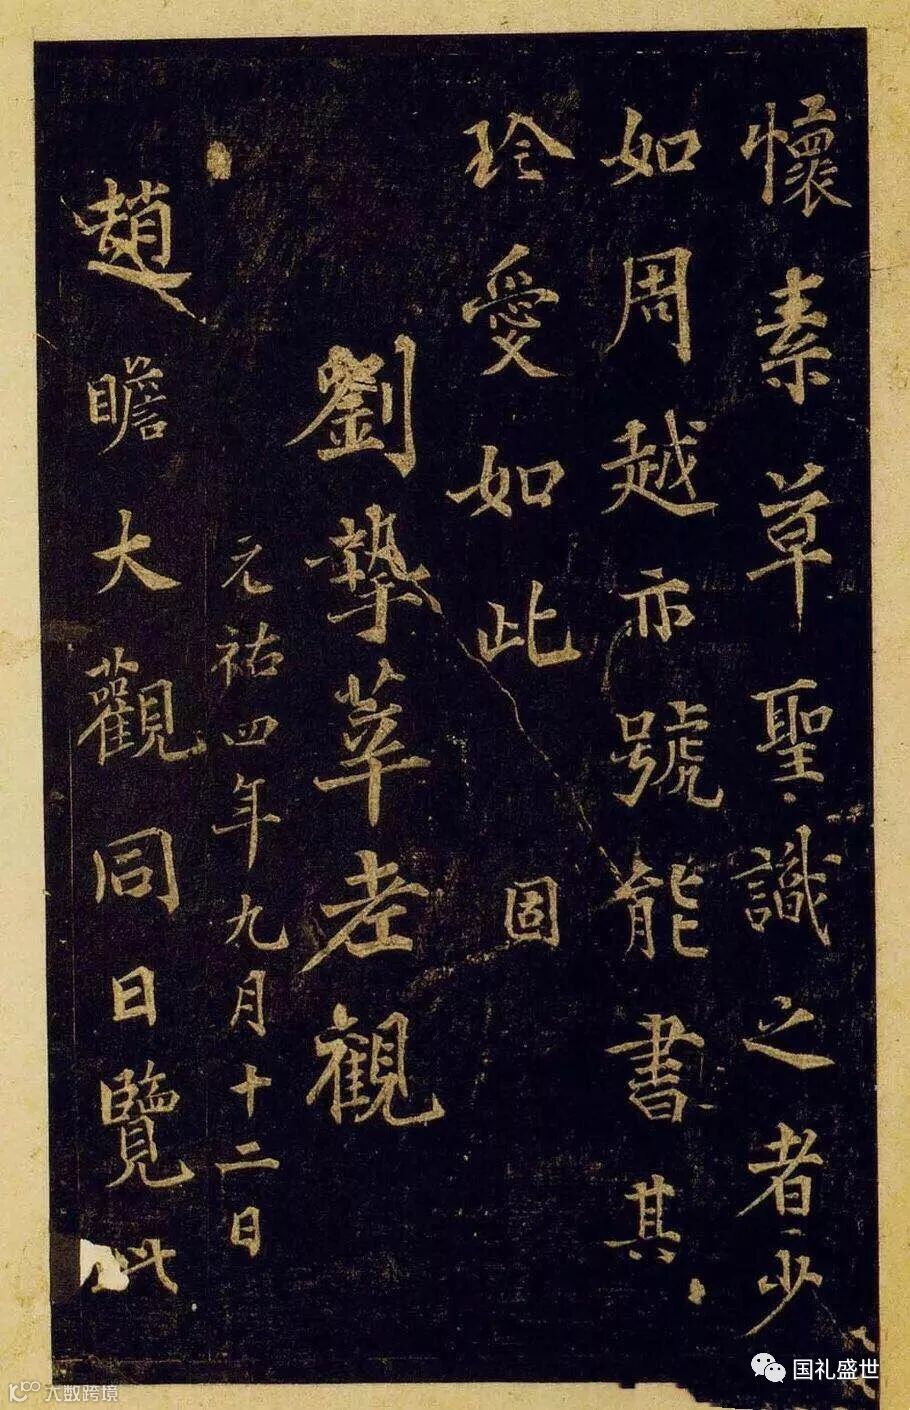 懷素草聖識之者少
如周越亦號能書其
珍愛如此 固
劉摯莘老觀
元祐四年九月十二日
趙瞻大觀同日覽此
国礼盛世
大数跨境